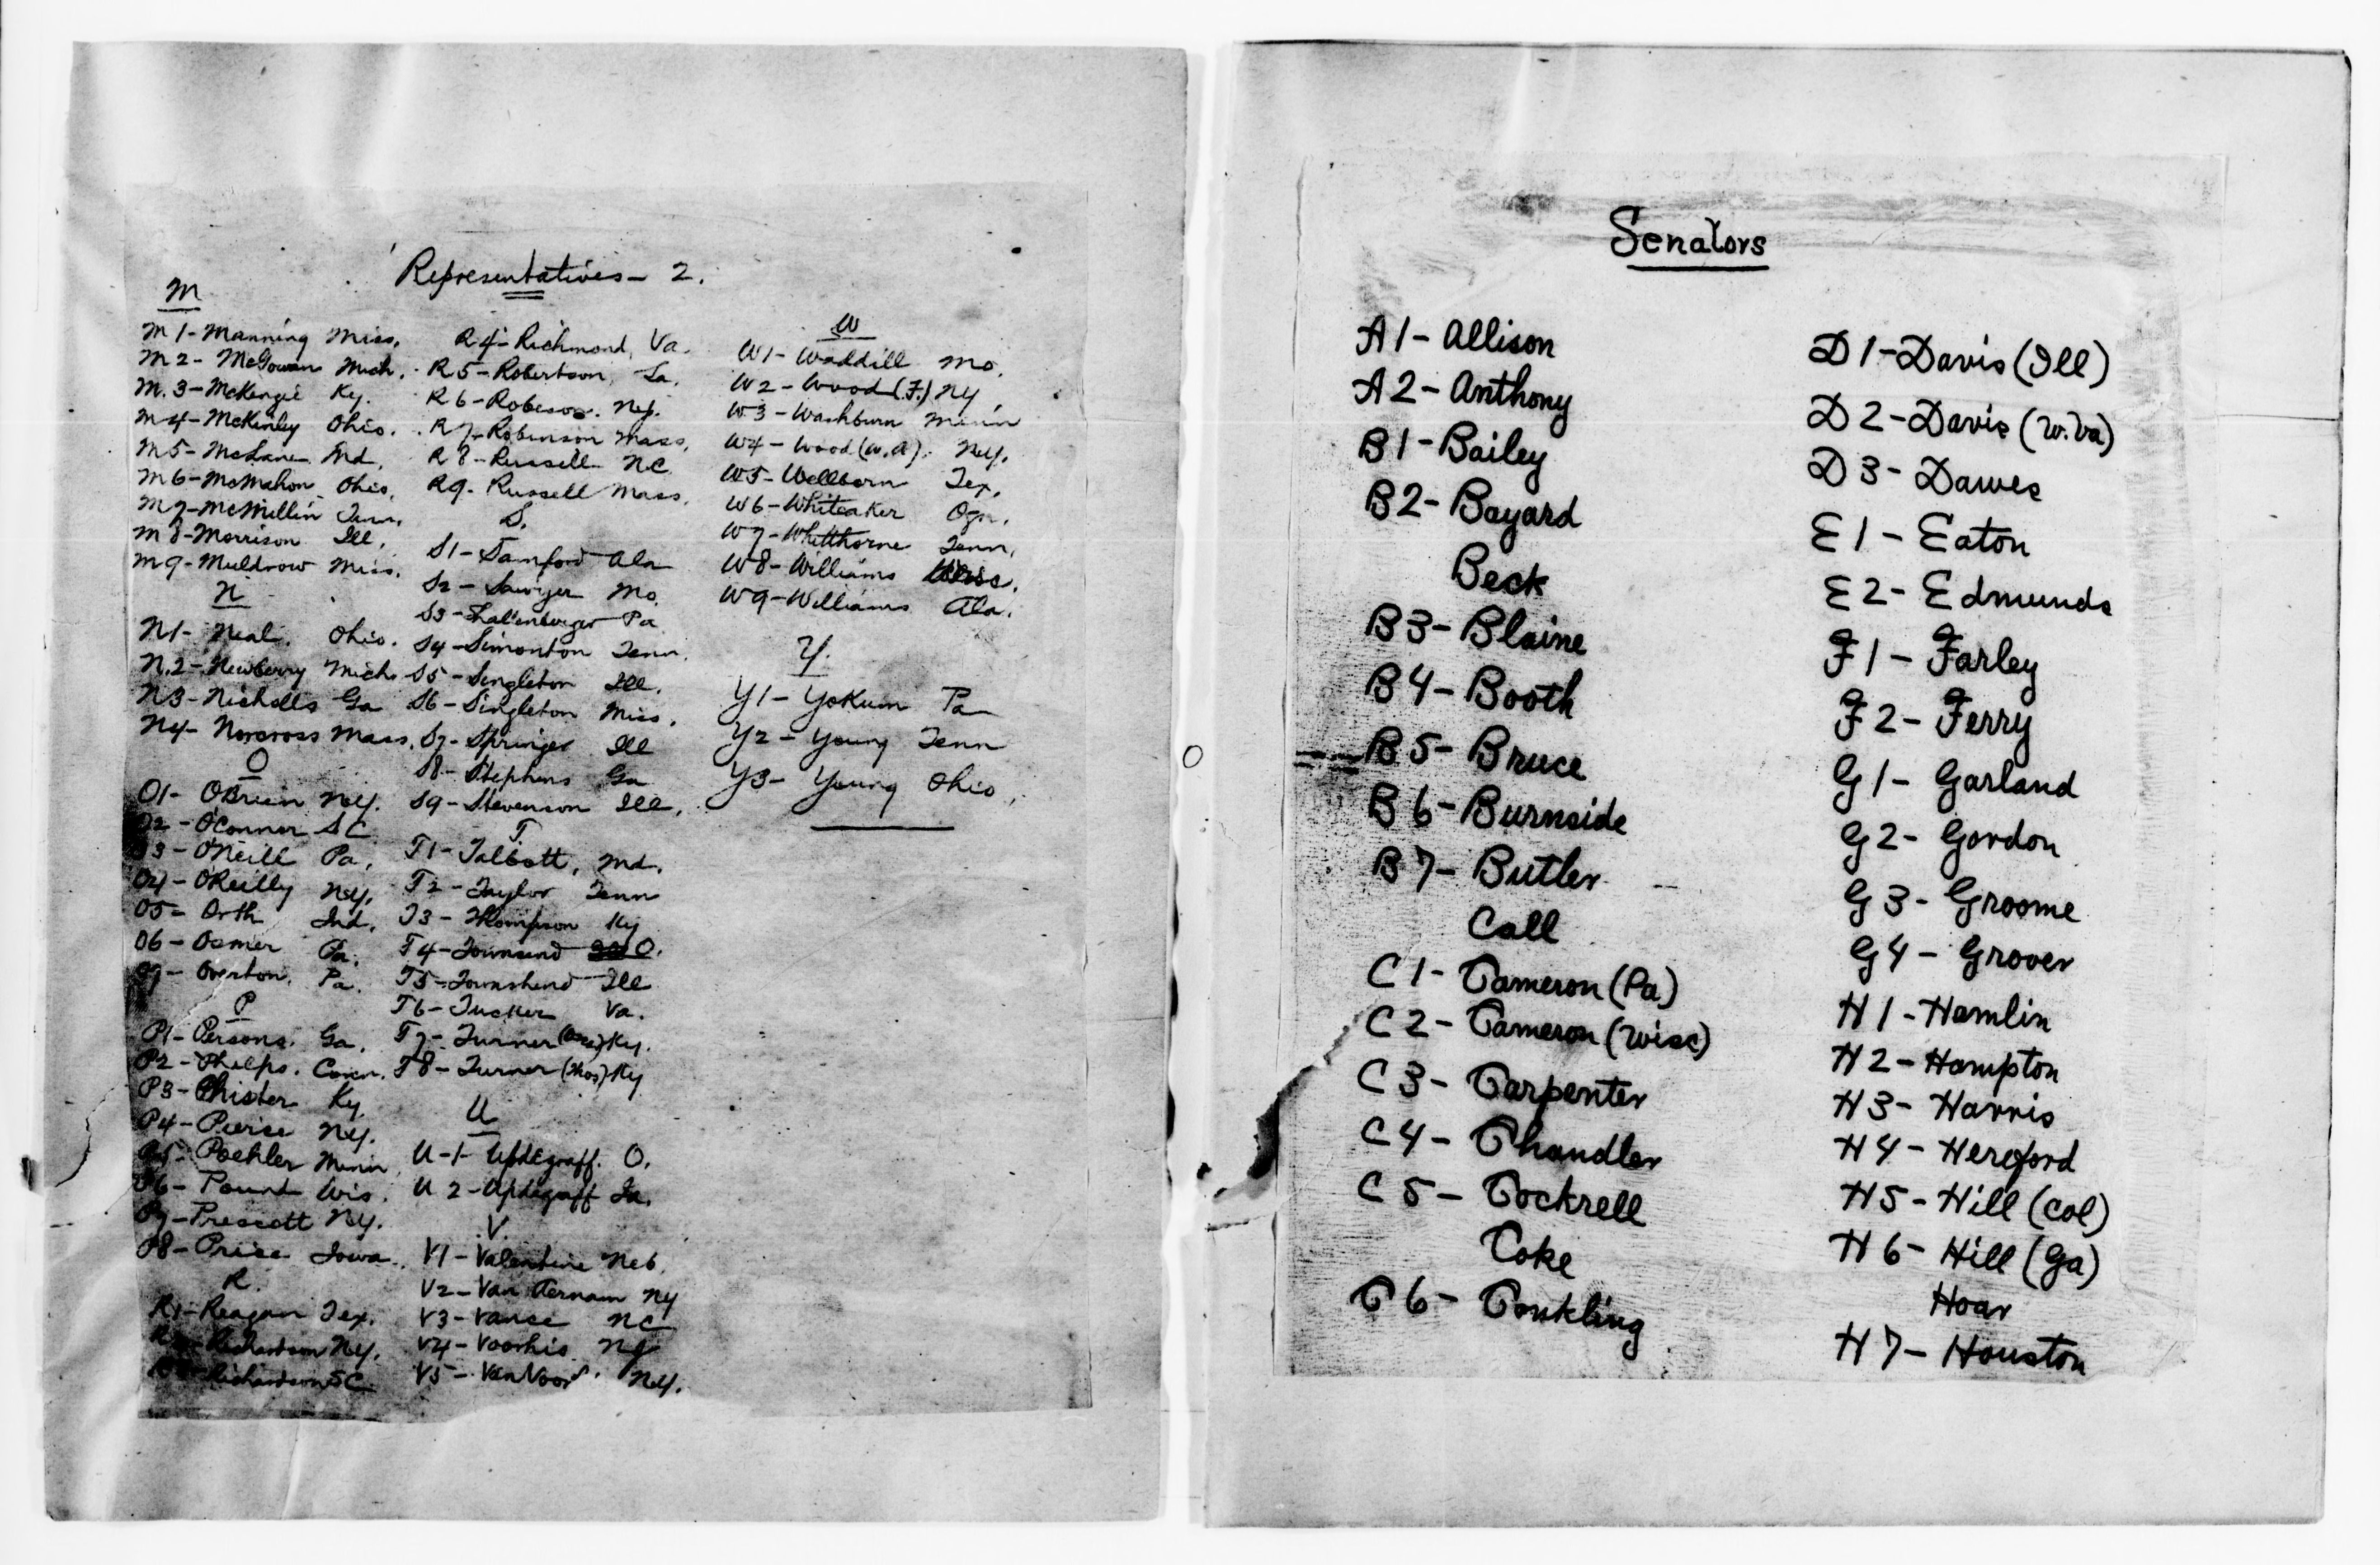 Representatives - 2.
M
M1-Manning Miss.
M2-McGowan Mich.
M.3-McKenzie Ky.
M4-McKinley Ohio.
M5-McLane Md.
M6-McMahon Ohio.
M7-McMillin Tenn.
M8-Morrison Ill.
M9-Muldrow Miss.
N
N1- Neal. Ohio.
N.2-Newberry Mich
N3-Nicholls Ga
N4- Norcross Mass.
O
O1- OBrien NY.
O2-O'Connor SC
O3-O'Neill Pa.
O4-OReilly NY.
O5- Orth Ind.
O6-Osmer Pa.
O7-Overton. Pa.
P
P1-Persons. Ga.
P2-Phelps. Conn.
P3-Phister Ky
P4-Pierce NY.
P5-Poehler Minn
P6-Pound Wis.
P7-Prescott NY.
P8-Price Iowa.
R.
R1-Reagan Tex.
R2-Richardson NY.
R3-Richardson SC
R4-Richmond, Va.
R5-Robertson, La.
R6-Robeson. NJ.
R7-Robinson Mass.
R8-Russell NC
R9-Russell Mass.
S.
S1-Samford Ala
S2-Sawyer Mo.
S3-Shallenberger Pa
S4-Simonton Tenn.
S5-Singleton Ill.
S6-Singleton Miss.
S7-Springer Ill
S8-Stephens Ga
S9-Stevenson Ill.
T.
T1-Talbott, Md.
T2-Taylor Tenn
T3-Thompson Ky
T4-Townsend O.
T5-Townshend Ill
T6-Tucker Va.
T7-Turner Ky.
T8-Turner (Thos) Ky
U
U-1-Updegraff. O.
U2-Updegraff Ia.
V.
V1-Valentine Neb.
V2-Van Aernam NY
V3-Vance NC
V4-Voorhis NJ
V5-VanVoor. NY.
W
W1-Waddill Mo.
W2-Wood (F.) NY
W3-Washburn Minn
W4-Wood (W.A). NY.
W5-Wellborn Tex.
W6-Whiteaker Ogn.
W7-Whitthorne Tenn.
W8-Williams Wisc.
W9-Williams Ala.
Y.
Y1-Yokum Pa
Y2-Young Tenn
Y3-Young Ohio.
Senators
A1-Allison
A2-Anthony
B1-Bailey
B2-Bayard
Beck
B3-Blaine
B4-Booth
B5-Bruce
B6-Burnside
B7-Butler
Call
C1-Cameron (Pa)
C2-Cameron (Wisc)
C3-Carpenter
C4-Chandler
C5-Cockrell
Coke
C6-Conkling
D1-Davis (Ill)
D2-Davis (W.Va)
D3-Dawes
E1-Eaton
E2-Edmunds
F1-Farley
F2-Ferry
G1-Garland
G2-Gordon
G3-Groome
G4-Grover
H1-Hamlin
H2-Hampton
H3-Harris
H4-Hereford
H5-Hill (Col)
H6-Hill (Ga)
Hoar
H7-Houston